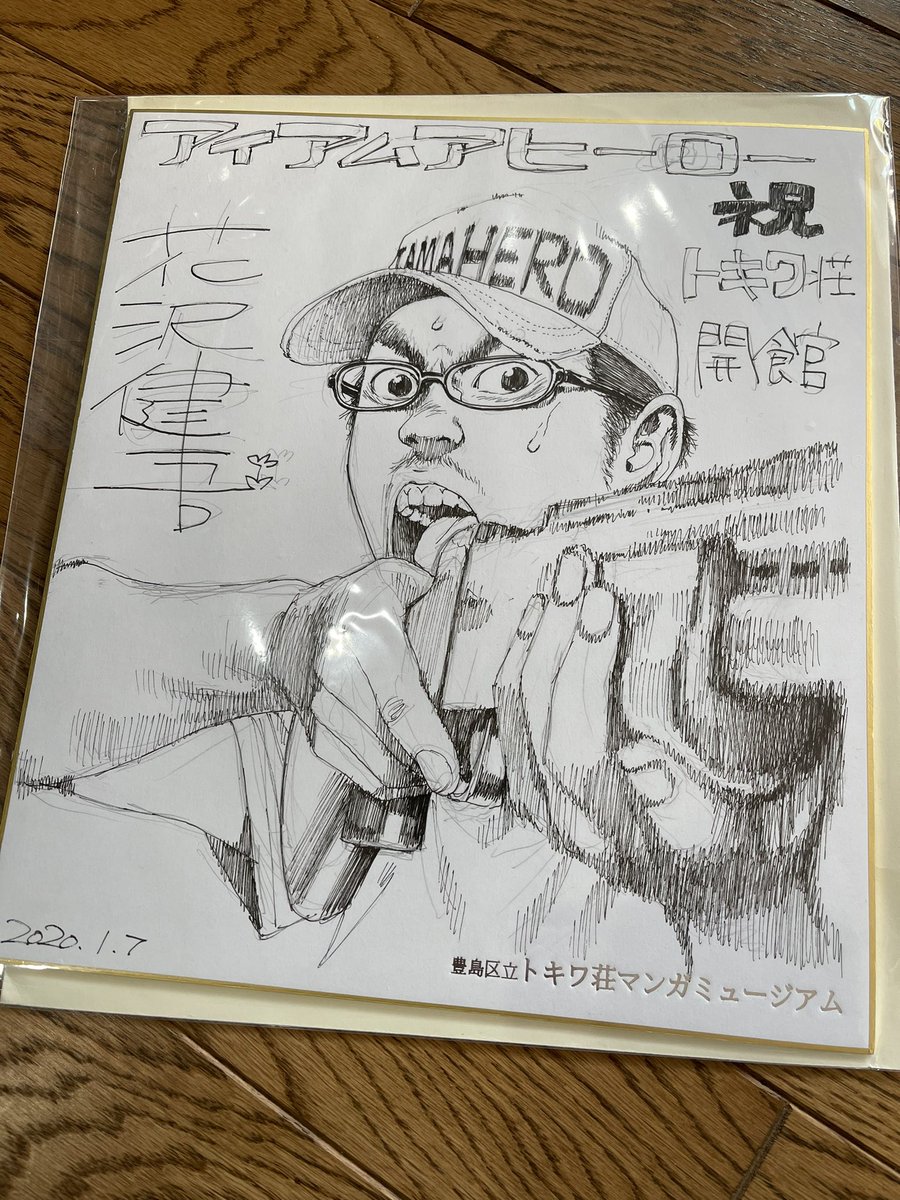 アイアムアヒーロー
祝
トキワ荘
開館
花沢健吾
I AM A HERO
2020.1.7
豊島区立トキワ荘マンガミュージアム